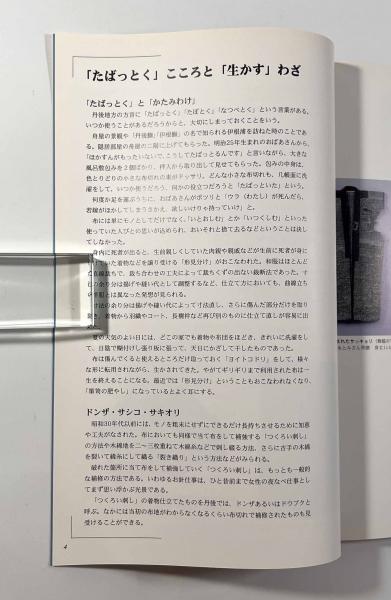 「たばっとく」こころと「生かす」わざ
「たばっとく」と「かたみわけ」
丹後地方の方言に「たばっとく」「たばとく」「なつべとく」という言葉がある。
いつか使うことがあるだろうからと、大切にしまっておくことをいう。
舟屋の景観や「丹後鰤」「伊根鰤」の名で知られる伊根浦を訪ねた時のことであ
る。隠居部屋の舟屋の二階に上げてもらった。明治25年生まれのおばあさんから、
「ほかすんがもったいないで、こうしてたばっとるんです」と言いながら、大きな
風呂敷包みを2個ばかり、押入から取り出して見せてもらった。包みの中身は、
色とりどりの小さな布切れの束がドッサリ。どんな小さな布切れも、几帳面に洗
濯をして、いつか使うだろう、何かの役立つだろうと「たばっといた」という。
何度か足を運ぶうちに、おばあさんがポツリと「ウラ（わたし）が死んだら、
若嫁がほかしてしまうさかえ、欲しいけりゃ持っていけ」と。
布には単にモノとしてだけでなく、「いとおしむ」とか「いつくしむ」といった
使っていた人びとの思いが込められ、おいそれと捨ておるなどということは決し
てしなかった。
身内に死者が出ると、生前親しくしていた肉親や親戚などが生前に死者が身に
けていた着物などを譲り受ける「形見分け」がおこなわれた。和服はほとんど
直線裁ちで、裁ち合わせの工夫によって裁ちくずの出ない裁断法であった。す
の余り分は揚げや縫い代として調整するなど、仕立て方においても、曲線立ち
洋服とは異なった発想が見られる。
寸法の余り分は揚げや縫い代によって寸法直し、さらに傷んだ部分だけを取り
き、着物から羽織やコート、長襦袢などと再び別のものに仕立て直しが容易に出
夏の天気のよい日には、どこの家でも着物や布団をほどき、きれいに洗濯をし
て、日陰で糊付けし張り板に張って、天日にかざして干したものであった。
布は傷んでくると使えるところだけ切っておく「ヨイトコドリ」をして、様々
な形に転用されながら、生かされてきた。やがてギリギリまで利用された布は一
生を終えることになる。最近では「形見分け」ということもおこなわれなくなり、
「箪笥の肥やし」になっているとよく耳にする。
ドンザ・サシコ・サキオリ
昭和30年代以前には、モノを粗末にせずにできるだけ長持ちさせるために知恵
や工夫がなされた。布においても同様で当て布をして補強する「つくろい刺し」
の方法や木綿地を二〜三枚重ねて木綿糸などで刺し綴る方法、さらに古手の木綿
を裂いて緯糸にして織る「裂き織り」という方法などがみられる。
破れた箇所に当て布をして補強していく「つくろい刺し」は、もっとも一般的
な補修の方法である。いわゆるお針仕事は、ひと昔前まで女性の夜なべ仕事とし
てまず思い浮かぶ光景である。
「つくろい刺し」の着物仕立てたものを丹後では、ドンザあるいはドウブクと
呼ぶ。なかには当初の布地がわからなくなるくらい布切れで補修されたものも見
受けることができる。
4